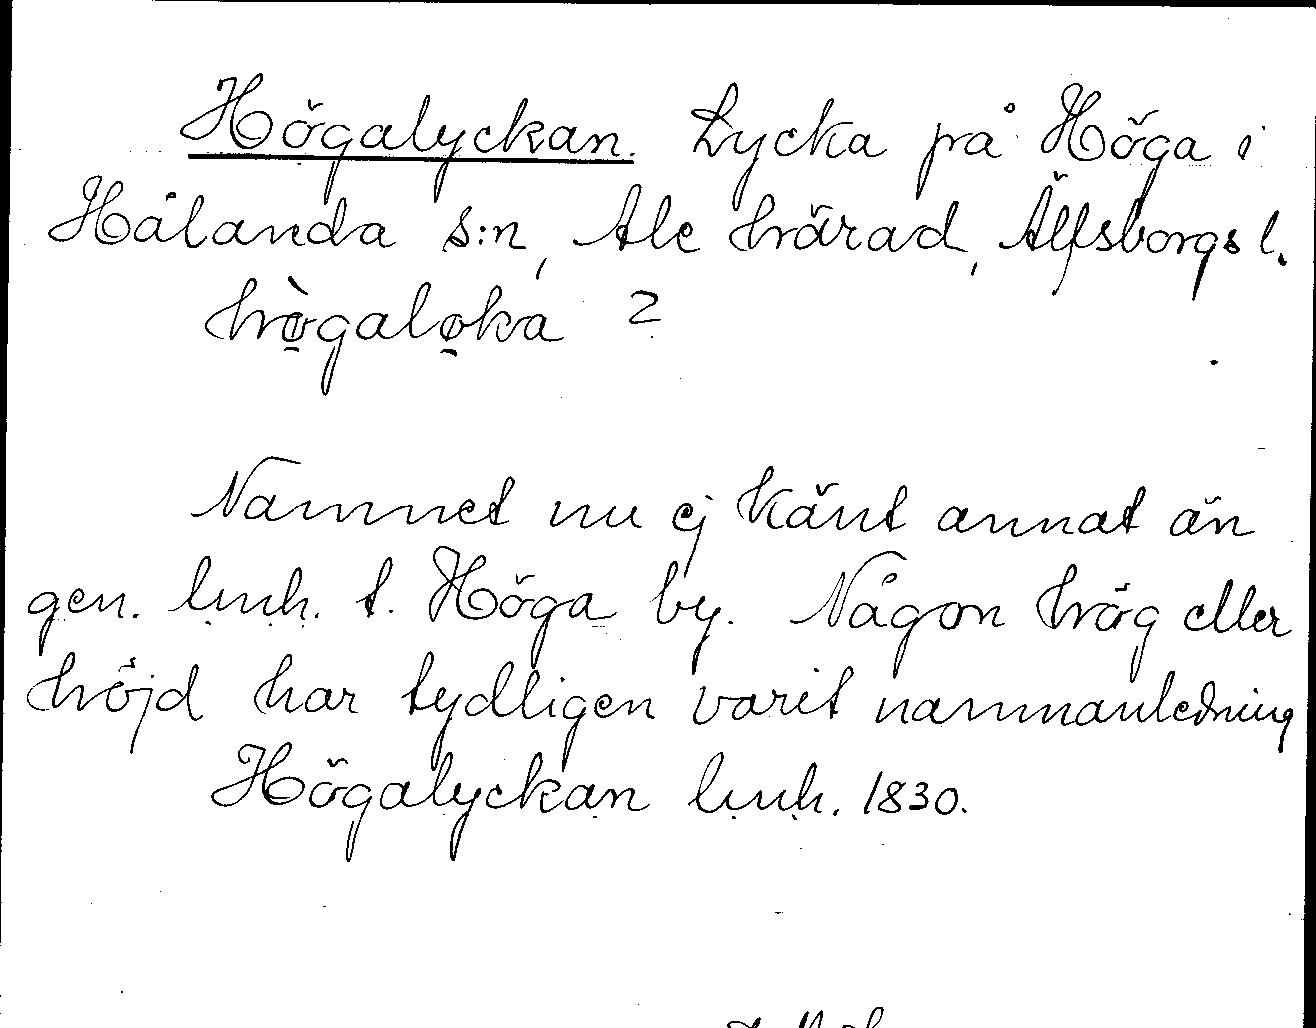 Högalyckan. Lycka på Höga i
Hålanda s:n, Ale härad, Älfsborgs l.
hø̱̀galø̱ka 2
Namnet nu ej känt annat än
gen. lmh. t. Höga by. Någon hög eller
höjd har tydligen varit namnanledning
Högalyckan lmh. 1830.